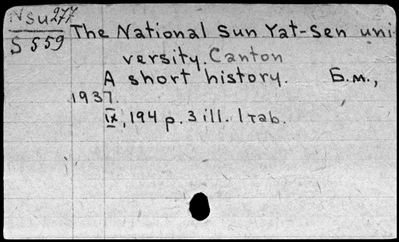 Nsu277
S 559
The National Sun Yat-Sen uni-
versity. Canton
A short history. Б.м.,
1937.
IX, 194 p. 3 ill. 1 tab.